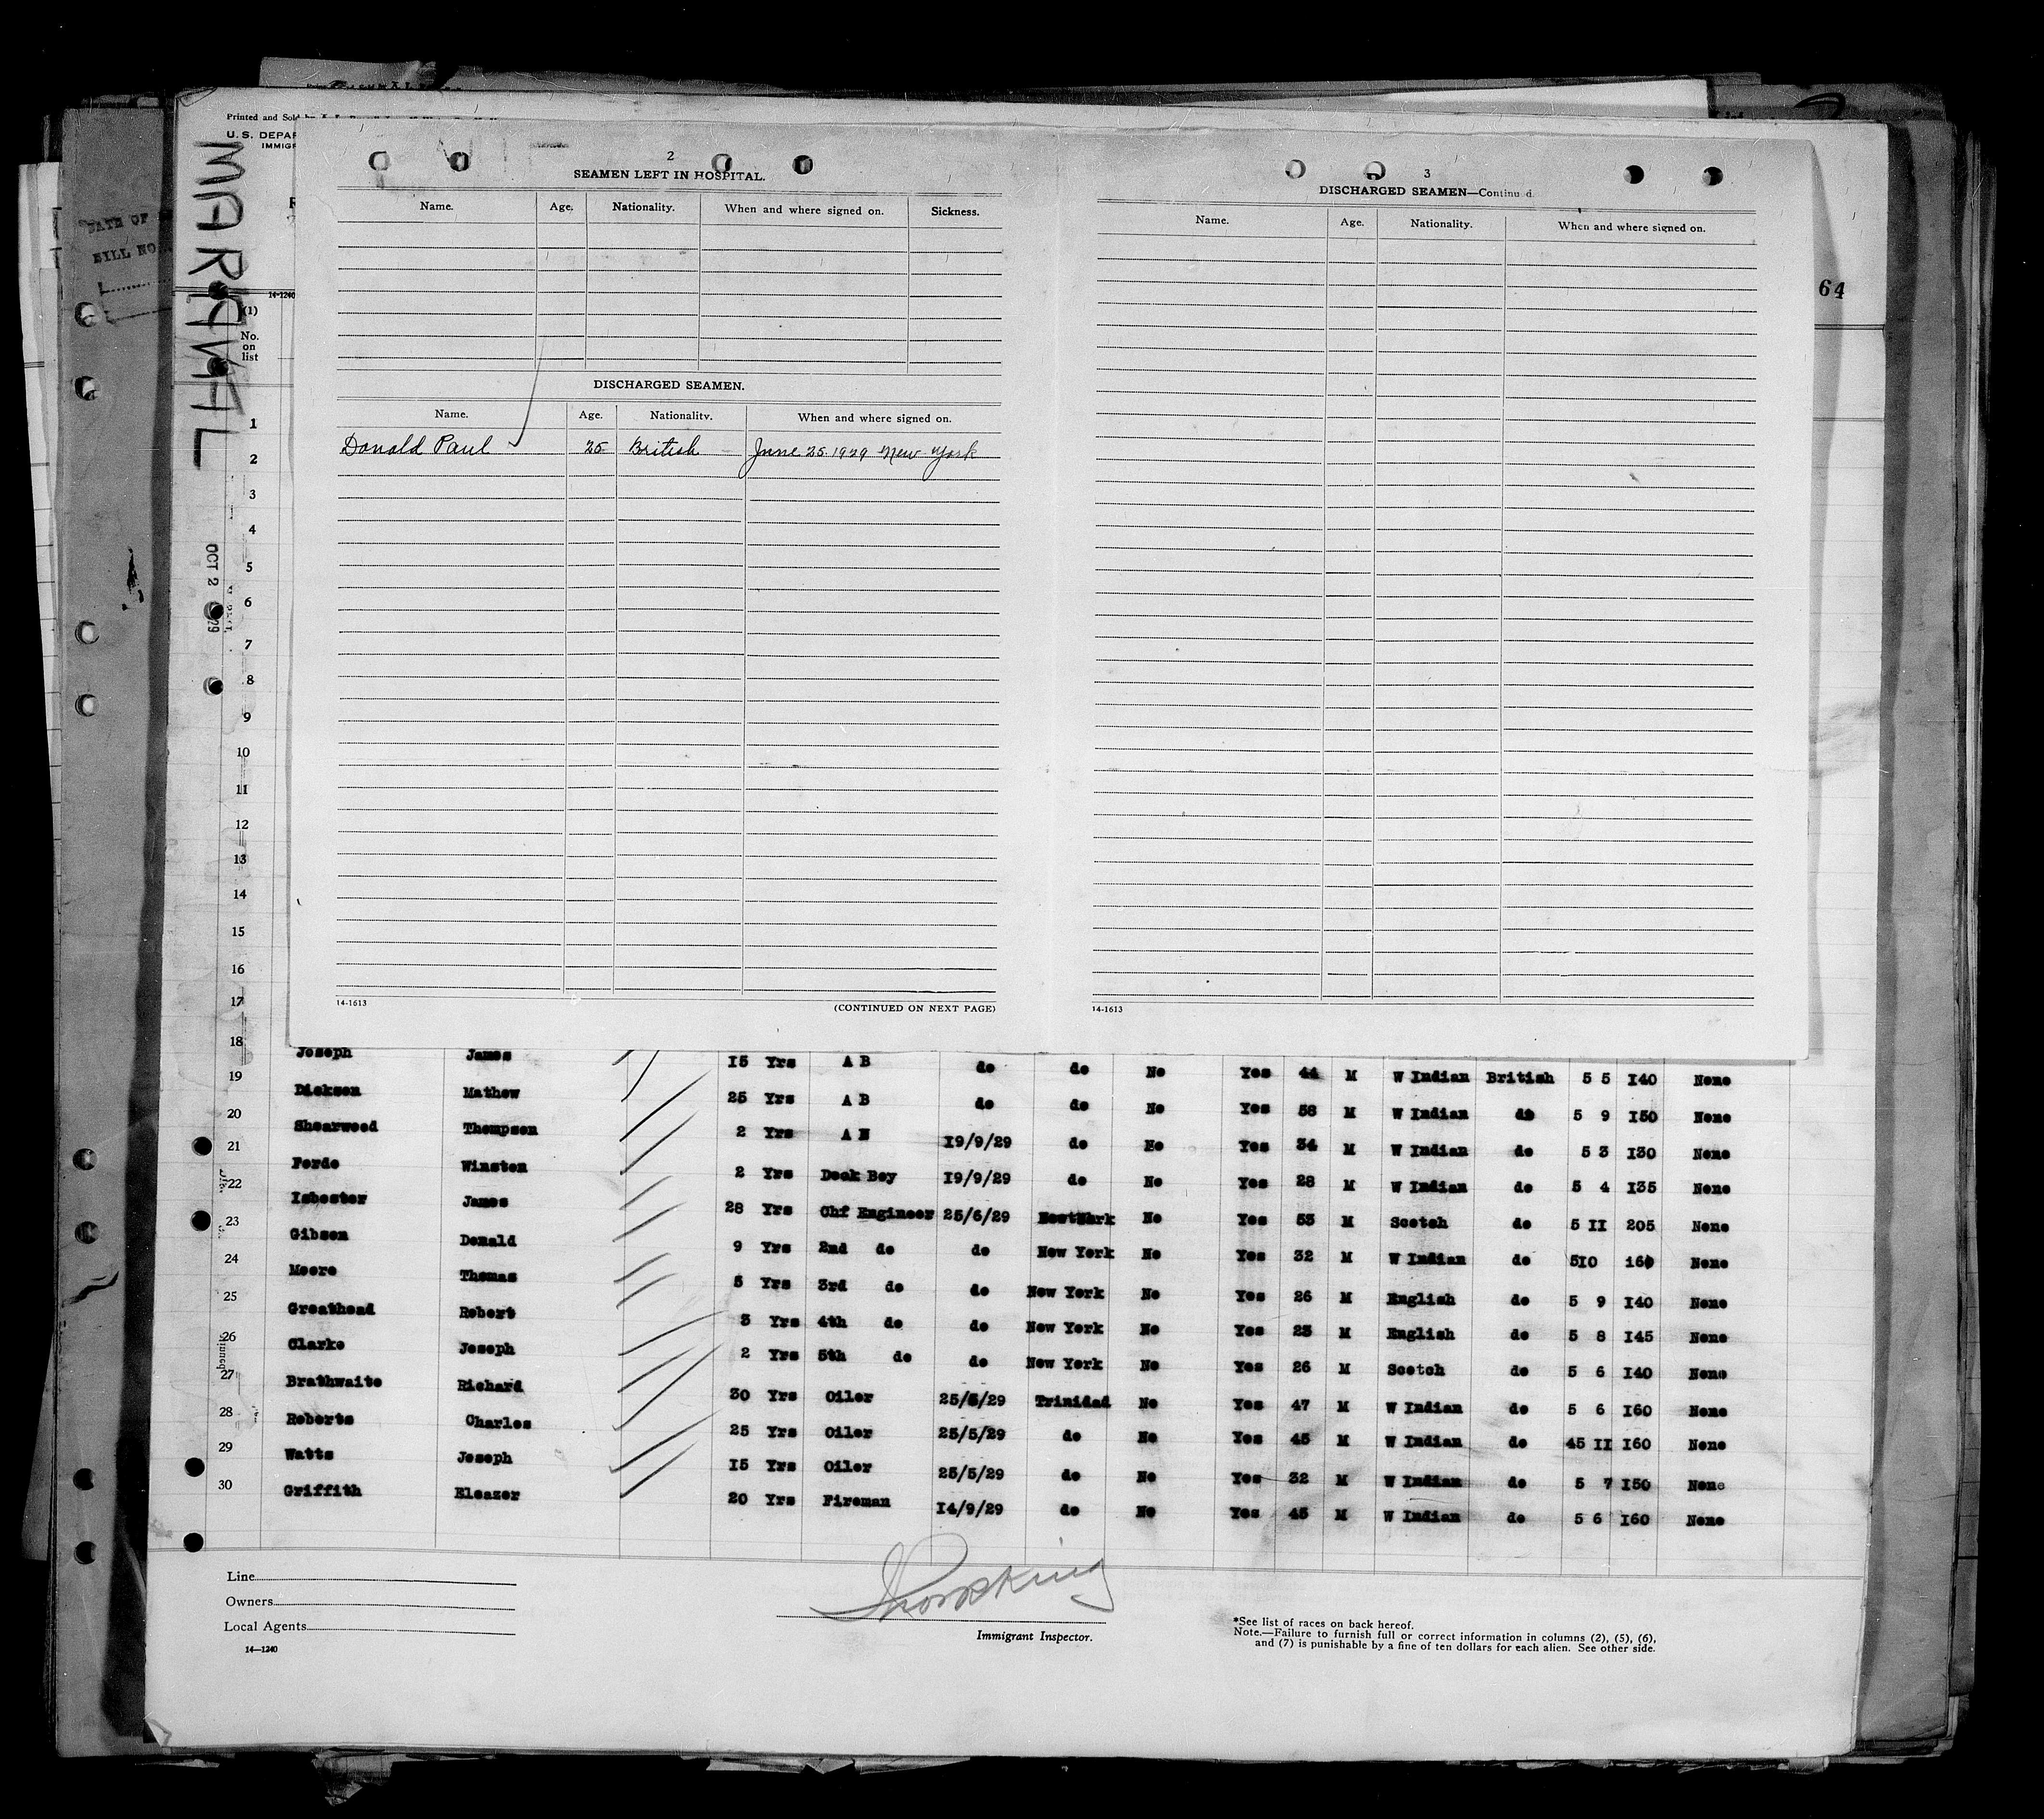 Printed and Sold by
U. S. DEPAR
IMMIGR
MARAVAL
DATE OF
BILL NO.
OCT 2 29
64
14-1240
(1)
No.
on
list
2
SEAMEN LEFT IN HOSPITAL.
Name. Age. Nationality. When and where signed on. Sickness.
DISCHARGED SEAMEN.
Name. Age. Nationality. When and where signed on.
Donald Paul 25 British June 25. 1929 New York
14-1613 (CONTINUED ON NEXT PAGE)
3
DISCHARGED SEAMEN—Continued
Name. Age. Nationality. When and where signed on.
14-1613
1
2
3
4
5
6
7
8
9
10
11
12
13
14
15
16
17
18 Joseph James 15 Yrs A B do do No Yes 44 M W Indian British 5 5 I40 None
19 Dickson Mathew 25 Yrs A B do do No Yes 58 M W Indian do 5 9 I50 None
20 Shearwood Thompson 2 Yrs A B I9/9/29 do No Yes 34 M W Indian do 5 3 I30 None
21 Forde Winston 2 Yrs Deck Boy I9/9/29 do No Yes 28 M W Indian do 5 4 I35 None
22 Isbester James 28 Yrs Chf Engineer 25/6/29 No Yes 53 M Scotch do 5 II 205 None
23 Gibson Donald 9 Yrs 2nd do do New York No Yes 32 M W Indian do 5I0 160 None
24 Moore Thomas 5 Yrs 3rd do do New York No Yes 26 M English do 5 9 I40 None
25 Greathead Robert 3 Yrs 4th do do New York No Yes 23 M English do 5 8 I45 None
26 Clarke Joseph 2 Yrs 5th do do New York No Yes 26 M Scotch do 5 6 I40 None
27 Brathwaite Richard 30 Yrs Oiler 25/5/29 Trinidad No Yes 47 M W Indian do 5 6 I60 None
28 Roberts Charles 25 Yrs Oiler 25/5/29 do No Yes 45 M W Indian do 45 II I60 None
29 Watts Joseph I5 Yrs Oiler 25/5/29 do No Yes 32 M W Indian do 5 7 I50 None
30 Griffith Eleazer 20 Yrs Fireman I4/9/29 do No Yes 45 M W Indian do 5 6 I60 None
Line
Owners
Local Agents
14—1240
Immigrant Inspector.
*See list of races on back hereof.
Note.—Failure to furnish full or correct information in columns (2), (5), (6),
and (7) is punishable by a fine of ten dollars for each alien. See other side.